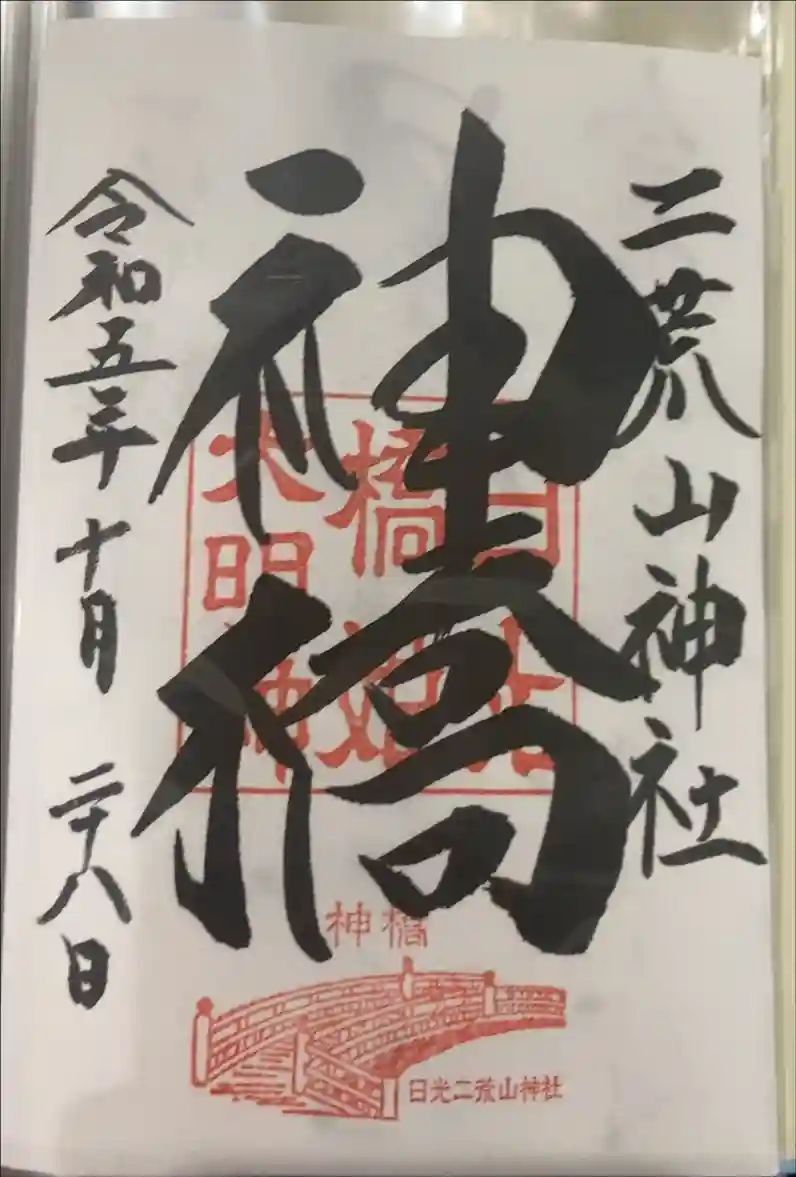 二荒山神社
神橋
令和五年十月二十八日
橋姫
大明神
神橋
日光二荒山神社